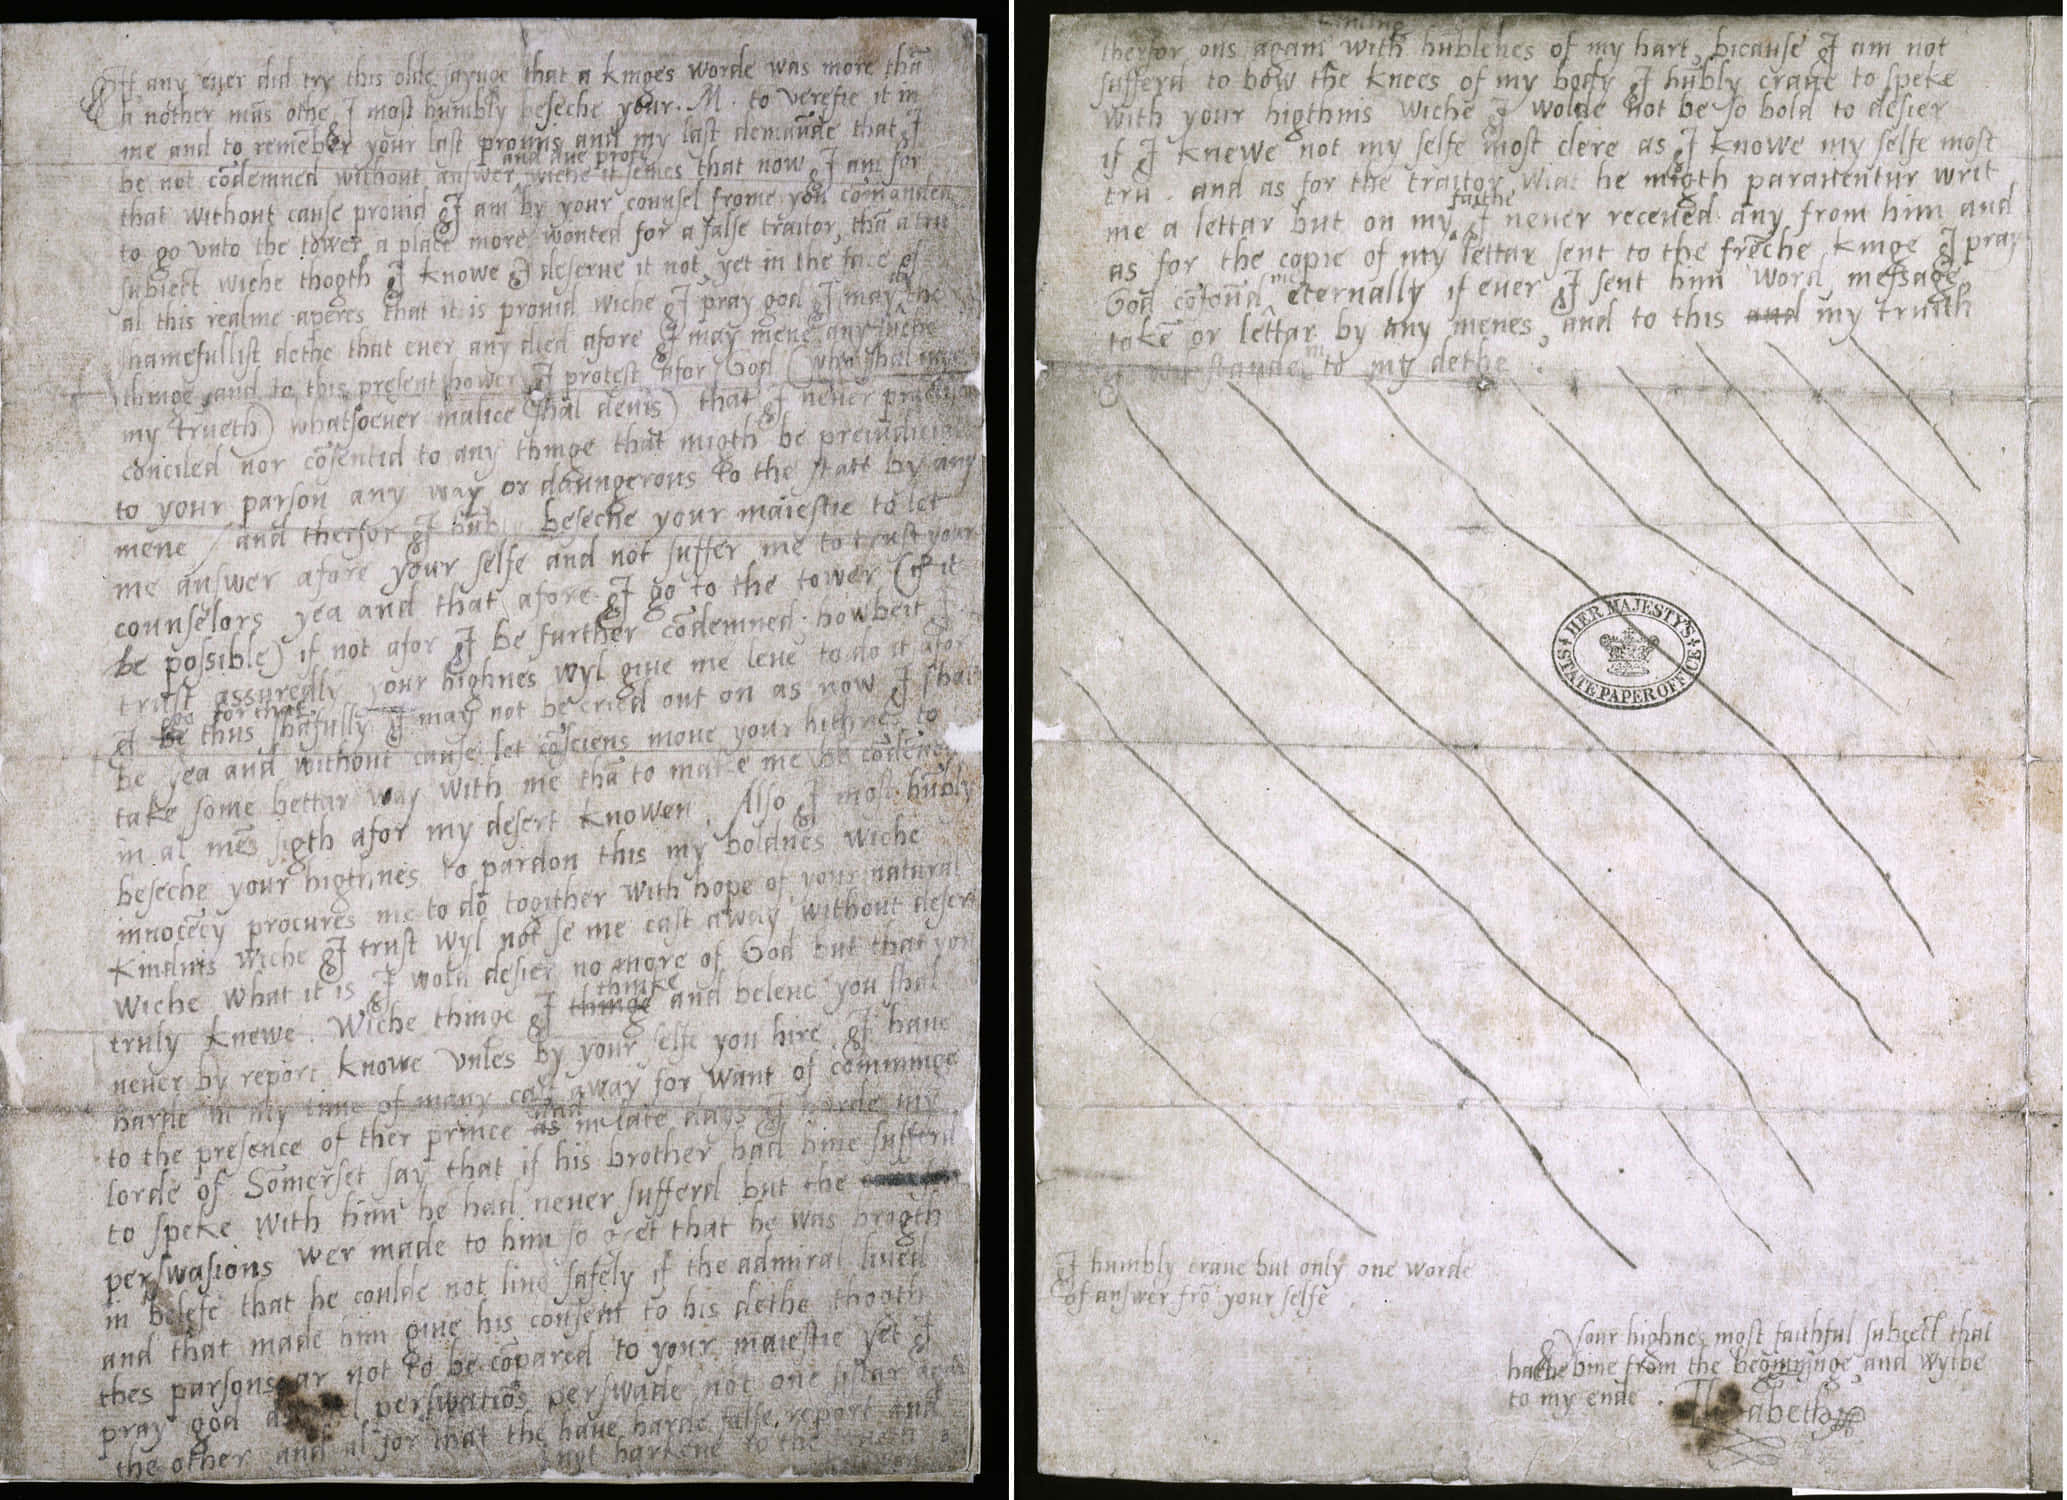 If any ever did try this olde saynge that a kinges worde was more thā
a nother mās othe I most humbly beseche your. M. to verefie it in
me and to remēber your last promis and my last demaūde that I
and due profe
be not cōdemned without answer wiche it semes that now I am for
that without cause provid I am by your counsel frome you comanded
to go unto the tower a place more wonted for a false traitor, thā a tru
subiect wiche thogth I knowe I deserve it not, yet in the face of
al this realme aperes that it is provid wiche I pray god I may the
shamefullist dethe that ever any died afore I may mene any suche
thinge and to this present hower I protest afor God (who shal iuge
my trueth) whatsoever malice shal devis) that I never practised
conciled nor cōsentid to any thinge that migth be preiudicial
to your parson any way or daungerous to the stat by any
mene / and therfor I hūbly beseche your maiestie to let
me answer afore your selfe and not suffer me to trust your
counselors yea and that afore I go to the tower (if it
be possible) if not afor I be further cōdemned. howbeit I
trust assuredly your highnes wyl give me leve to do it afor
for that
I be thus shāfully I may not be cried out on as now I shal
be yea and without cause let cōsciens move your hithnes to
take some bettar way with me thā to make me be cōdemned
in al mēs sigth afor my desert knowen. Also I most hūbly
beseche your higthnes to pardon this my boldnes wiche
innocēcy procures me to do togither with hope of your natural
kindnis wiche I trust wyl not se me cast away without desert
wiche what it is I wold desier no more of God but that you
thinke
truly knewe. Wiche thinge I thinge and beleve you shal
never by report knowe unles by your selfe you hire. I have
harde in my time of many cast away for want of comminge
and
to the presence of ther prince as in late days I harde my
lorde of Somerset say that if his brother had bine sufferd
to speke with him he had never sufferd but the
perswasions wer made to him so gret that he was brogth
in belefe that he coulde not live safely if the admiral lived
and that made him give his consent to his dethe thogth
thes parsons ar not to be cōpared to your maiestie yet I
pray god perswatiōs perswade not one sistar again
the other and al for that the have harde false report and
not harkene to the
kneling
therfor ons again with hūblenes of my hart, bicause I am not
sufferd to bow the knees of my body I hūbly crave to speke
with your higthnis wiche I wolde not be so bold to desier
if I knewe not my selfe most clere as I knowe my selfe most
tru. and as for the traitor Wiat he migth paraventur writ
faithe
me a lettar but on my I never receved any from him and
as for the copie of my lettar sent to the frēche kinge I pray
me
God cōfoūd eternally if ever I sent him word, message,
takē or lettar by any menes, and to this and my truith
I wil stande in to my dethe.
HER MAJESTY'S STATE PAPER OFFICE
I humbly crave but only one worde
of answer frō your selfe
Your highnes most faithful subiect that
hathe bine from the beginninge, and wylbe
to my ende. Elizabeth